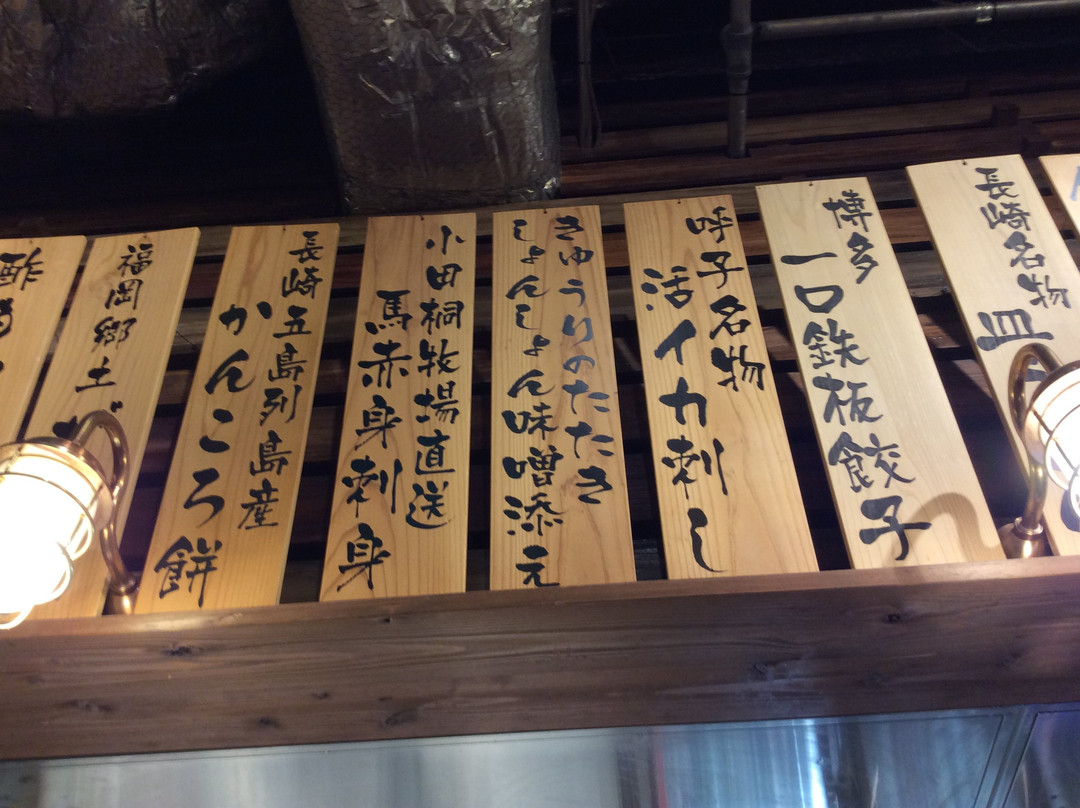 長崎名物
皿
博多
一口鉄板餃子
呼子名物
活イカ刺し
きゅうりのたたき
しょんしょん味噌添え
小田桐牧場直送
馬赤身刺身
長崎五島列島産
かんころ餅
福岡郷土
酢